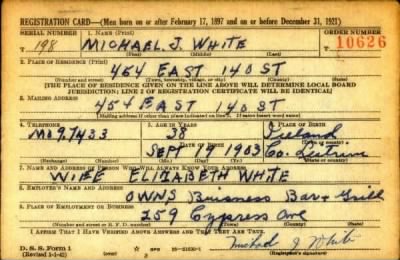 REGISTRATION CARD—(Men born on or after February 17, 1897 and on or before December 31, 1921)
SERIAL NUMBER 1. NAME (Print) ORDER NUMBER
T 198 MICHAEL J. WHITE 10626
(First) (Middle) (Last)
2. PLACE OF RESIDENCE (Print)
454 EAST 140 ST
(Number and street) (Town, township, village, or city) (County) (State)
[THE PLACE OF RESIDENCE GIVEN ON THE LINE ABOVE WILL DETERMINE LOCAL BOARD
JURISDICTION; LINE 2 OF REGISTRATION CERTIFICATE WILL BE IDENTICAL]
3. MAILING ADDRESS
454 EAST 140 ST
[Mailing address if other than place indicated on line 2. If same insert word same]
4. TELEPHONE 5. AGE IN YEARS 6. PLACE OF BIRTH
MO 9.7433 38 Ireland
DATE OF BIRTH
SEPT 19 1903 Co. Leitrim
(Exchange) (Number) (Mo.) (Day) (Yr.) (State or country)
7. NAME AND ADDRESS OF PERSON WHO WILL ALWAYS KNOW YOUR ADDRESS
WIFE ELIZABETH WHITE
8. EMPLOYER'S NAME AND ADDRESS
OWNS Buisness Bar & Grill
9. PLACE OF EMPLOYMENT OR BUSINESS
259 Cypress Ave
(Number and street or R. F. D. number) (Town) (County) (State)
I AFFIRM THAT I HAVE VERIFIED ABOVE ANSWERS AND THAT THEY ARE TRUE.
D. S. S. Form 1
(Revised 1-1-42) (over) Michael J White
(Registrant's signature)